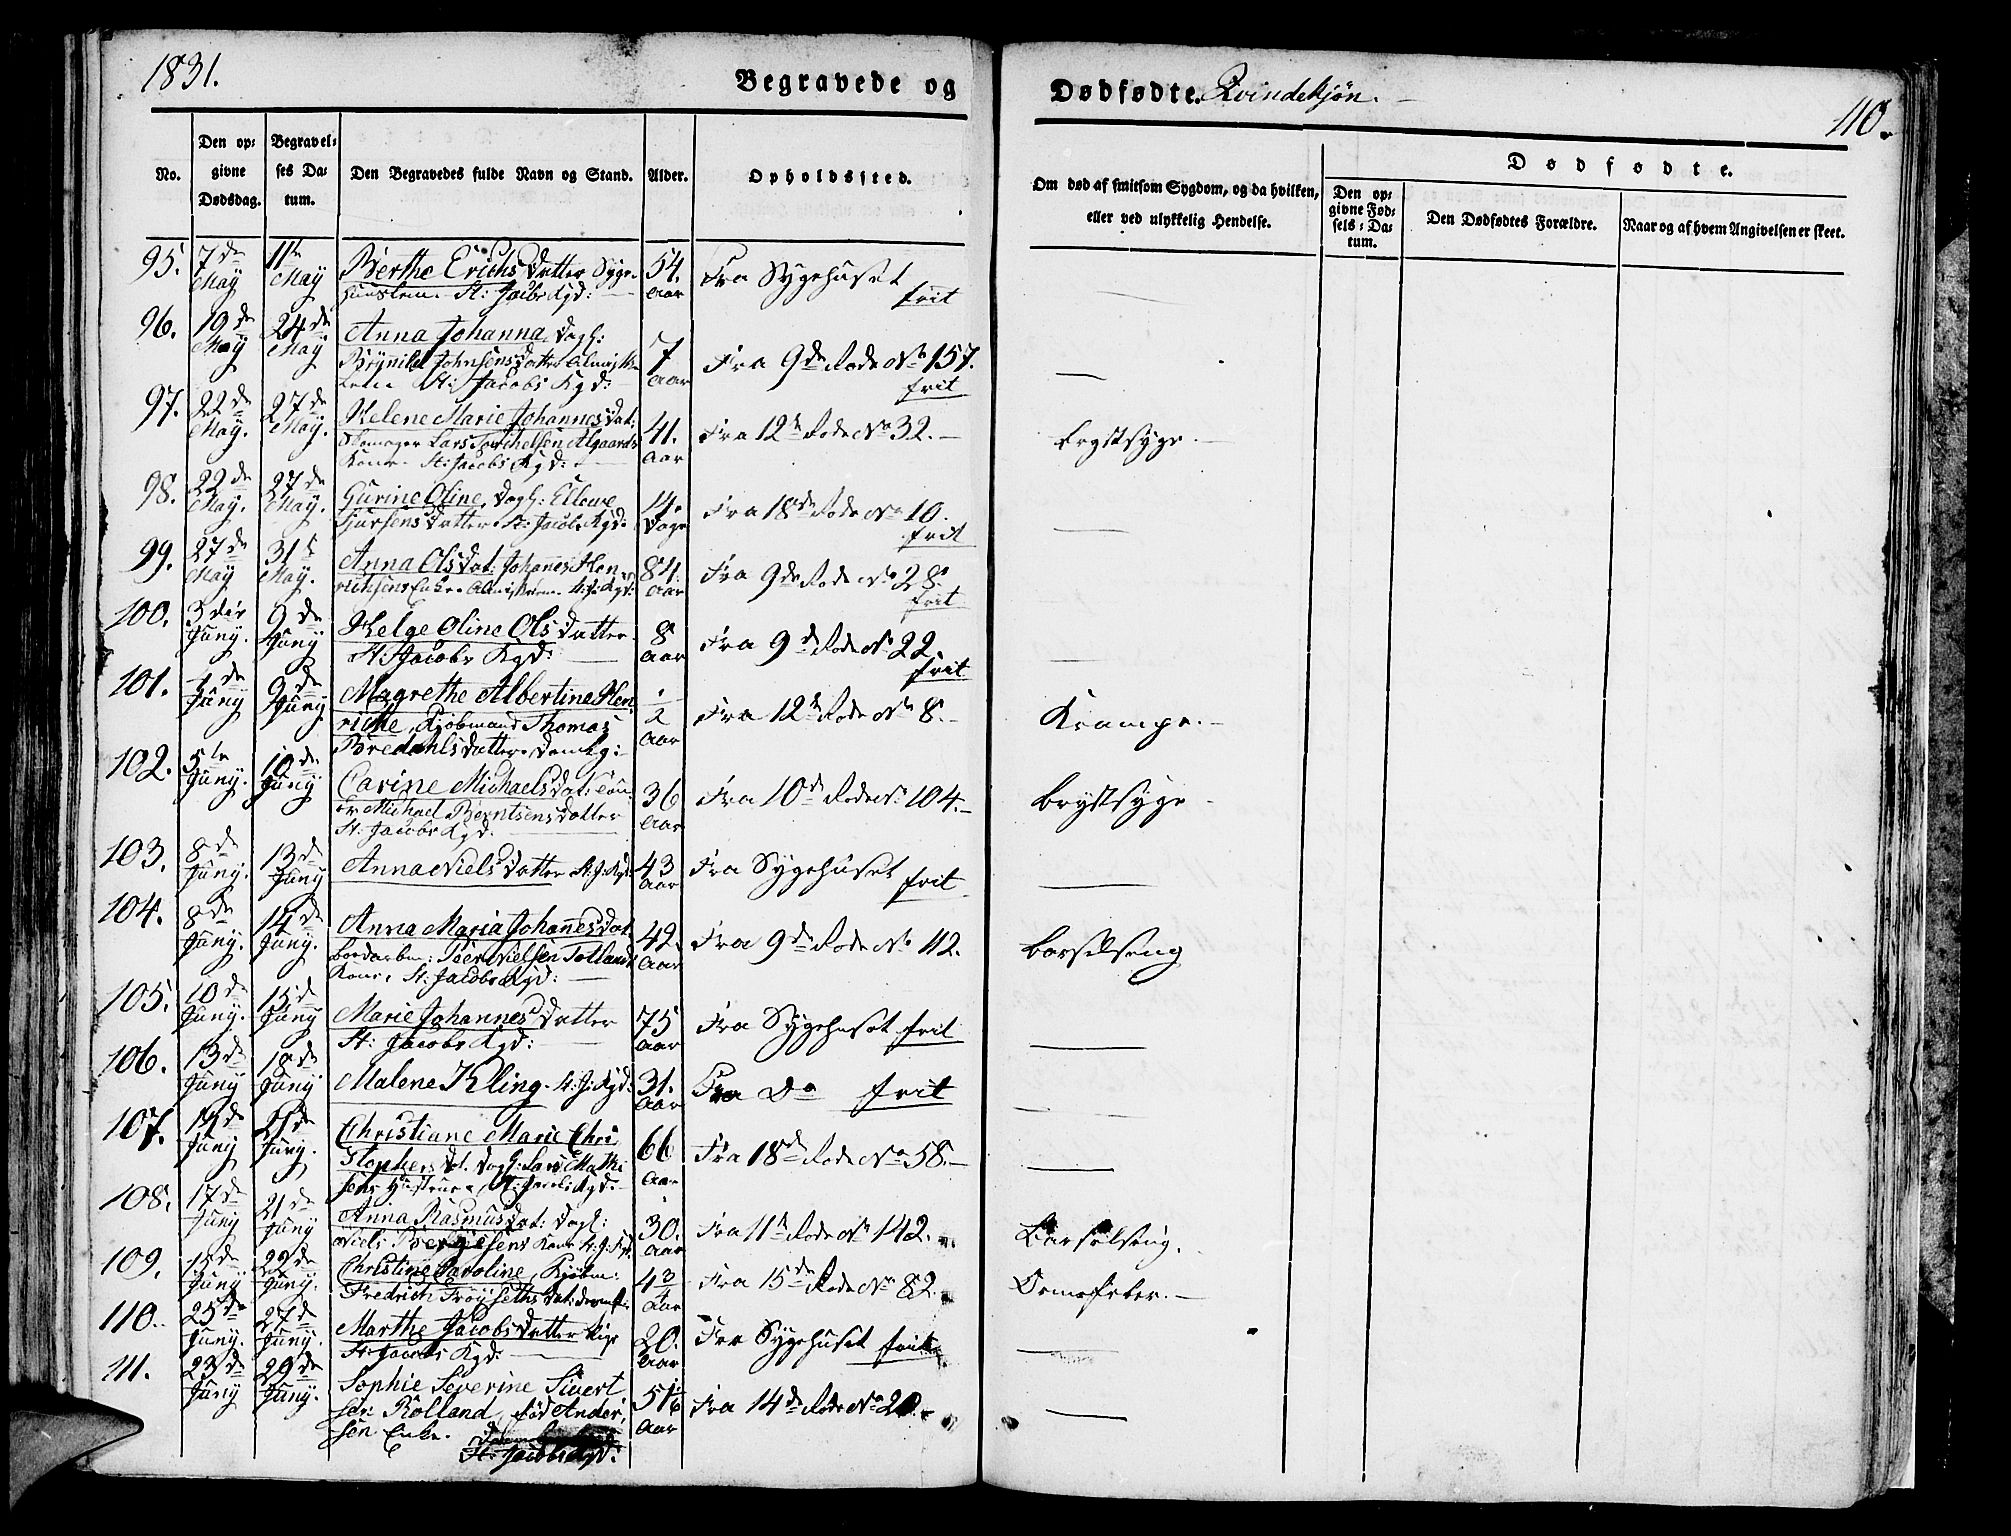 1831.
Begravede og
Dødfødte. Qvindekjøn.
110.
No.
Den op=
givne
Dødsdag.
Begravel=
ses Da=
tum.
Den Begravedes fulde Navn og Stand.
Alder.
Opholdssted.
Om død af smitsom Sygdom, og da hvilken,
eller ved ulykkelig Hendelse.
Dødfødte.
Den op=
givne Fød=
sels=Da=
tum.
Den Dødfødtes Forældre.
Naar og af hvem Angivelsen er skeet.
95. 7de May 11te May Berthe Erichsdatter Syge-
St: Jacobs Kgd: 54. Aar Fra Sygehuset frit
96. 19de May 24de May Anna Johanna, Dagl:
Brynild Johnsens datter
St: Jacobs Kgd: 7 Aar Fra 9de Rode No 157. frit
97. 22de May. 27de May. Helene Marie Johannesdat:
Lars Torchelsen Algaards
Kone. St: Jacobs Kgd: 41. Aar Fra 12te Rode No 32. Brystsyge.
98. 22de May. 27de May. Gurine Oline, Dagl: Ellewe
datter. St: Jacobs Kgd. 14. Dage Fra 18de Rode No 10. frit
99. 27de May 31te May. Anna Olsdat: Johanes Hen
richsens Enke. St: J: Kgd: 84. Aar Fra 9de Rode No 28. frit
100. 3die Juny. 9de Juny Helge Oline Olsdatter.
St: Jacobs Kgd: 8 Aar Fra 9de Rode No 22. frit
101. Juny 9de Juny Magrethe Albertine Hen
richte, Kjøbmand Thomas
Bredahls datter. Domkg: 2 Aar Fra 12te Rode No 8. Krampe.
102. 5te Juny. 10de Juny Carine Michaelsdat:
Michael Berntsens datter
St: Jacobs Kgd. 36 Aar Fra 10de Rode No 104. Brystsyge
103. 8de Juny. 13de Juny Anna Nielsdatter St: J: Kgd: 43 Aar Fra Sygehuset frit
104. 8de Juny. 14de Juny. Anna Maria Johanesdat.
Nielsen Totlands
Kone. St: Jacobs Kgd: 42. Aar Fra 9de Rode No 112. Barselseng
105. 10de Juny. 15de Juny Marie Johannesdatter
St: Jacobs Kgd: 75 Aar Fra Sygehuset frit
106. 13de Juny 18de Juny Malene Kling. St: J: Kgd: 31. Aar Fra Do frit
107. Juny Juny. Christiane Marie Chri
stophersdt. Dagl: Lars Mathi
sens Hustrue. St: Jacobs Kgd. 66 Aar Fra 18de Rode No 58.
108. 17de Juny 21de Juny Anna Rasmusdat: Dagl:
Niels Børgesens Kone St: J: Kgd. 30. Aar Fra 11te Rode No 142. Barselseng.
109. 15de Juny 22de Juny. Christine Caroline, Kjøbm:
Fredrich Frøyseths Dat: 43 Aar Fra 15de Rode No 82.
110. 25de Juny. 27de Juny. Marthe Jacobsdatter Pige
St: Jacobs Kgd: 20. Aar Fra Sygehuset frit
111. 23de Juny 29de Juny. Sophie Severine Sivert
sen Rolland, fød Ander
sen Enke.
St: Jacobs Kgd: 51 Aar Fra 14de Rode No 20.